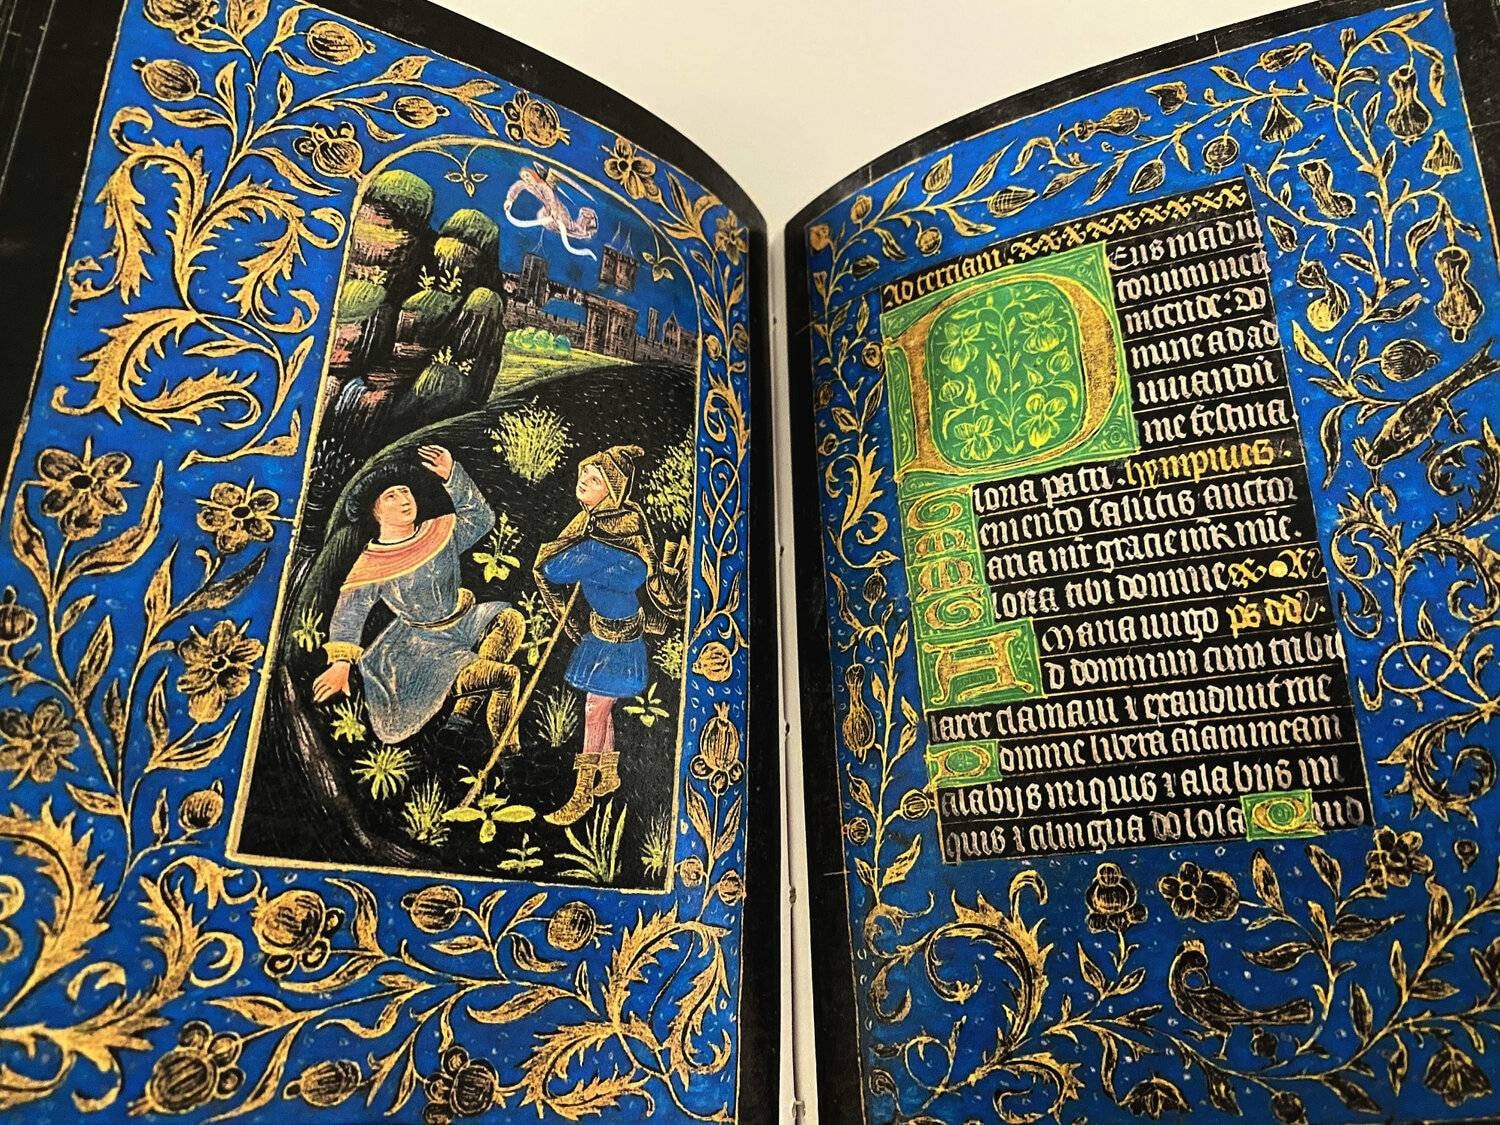 Ad terciam.
Deus in adiu
torium meū
intende: do
mine ad ad
iuuandū
me festina.
Gloria patri . hympnus .
Memento salutis auctor
Maria mr̄ gracie mr̄ mīe.
Gloria tibi domine
Maria uirgo ps dd.
Ad dominum cum tribu
larer clamaui ⁊ exaudiuit me
Domine libera aīam meam
a labijs iniquis ⁊ a labijs ini
quis ⁊ a lingua dolosa Quid